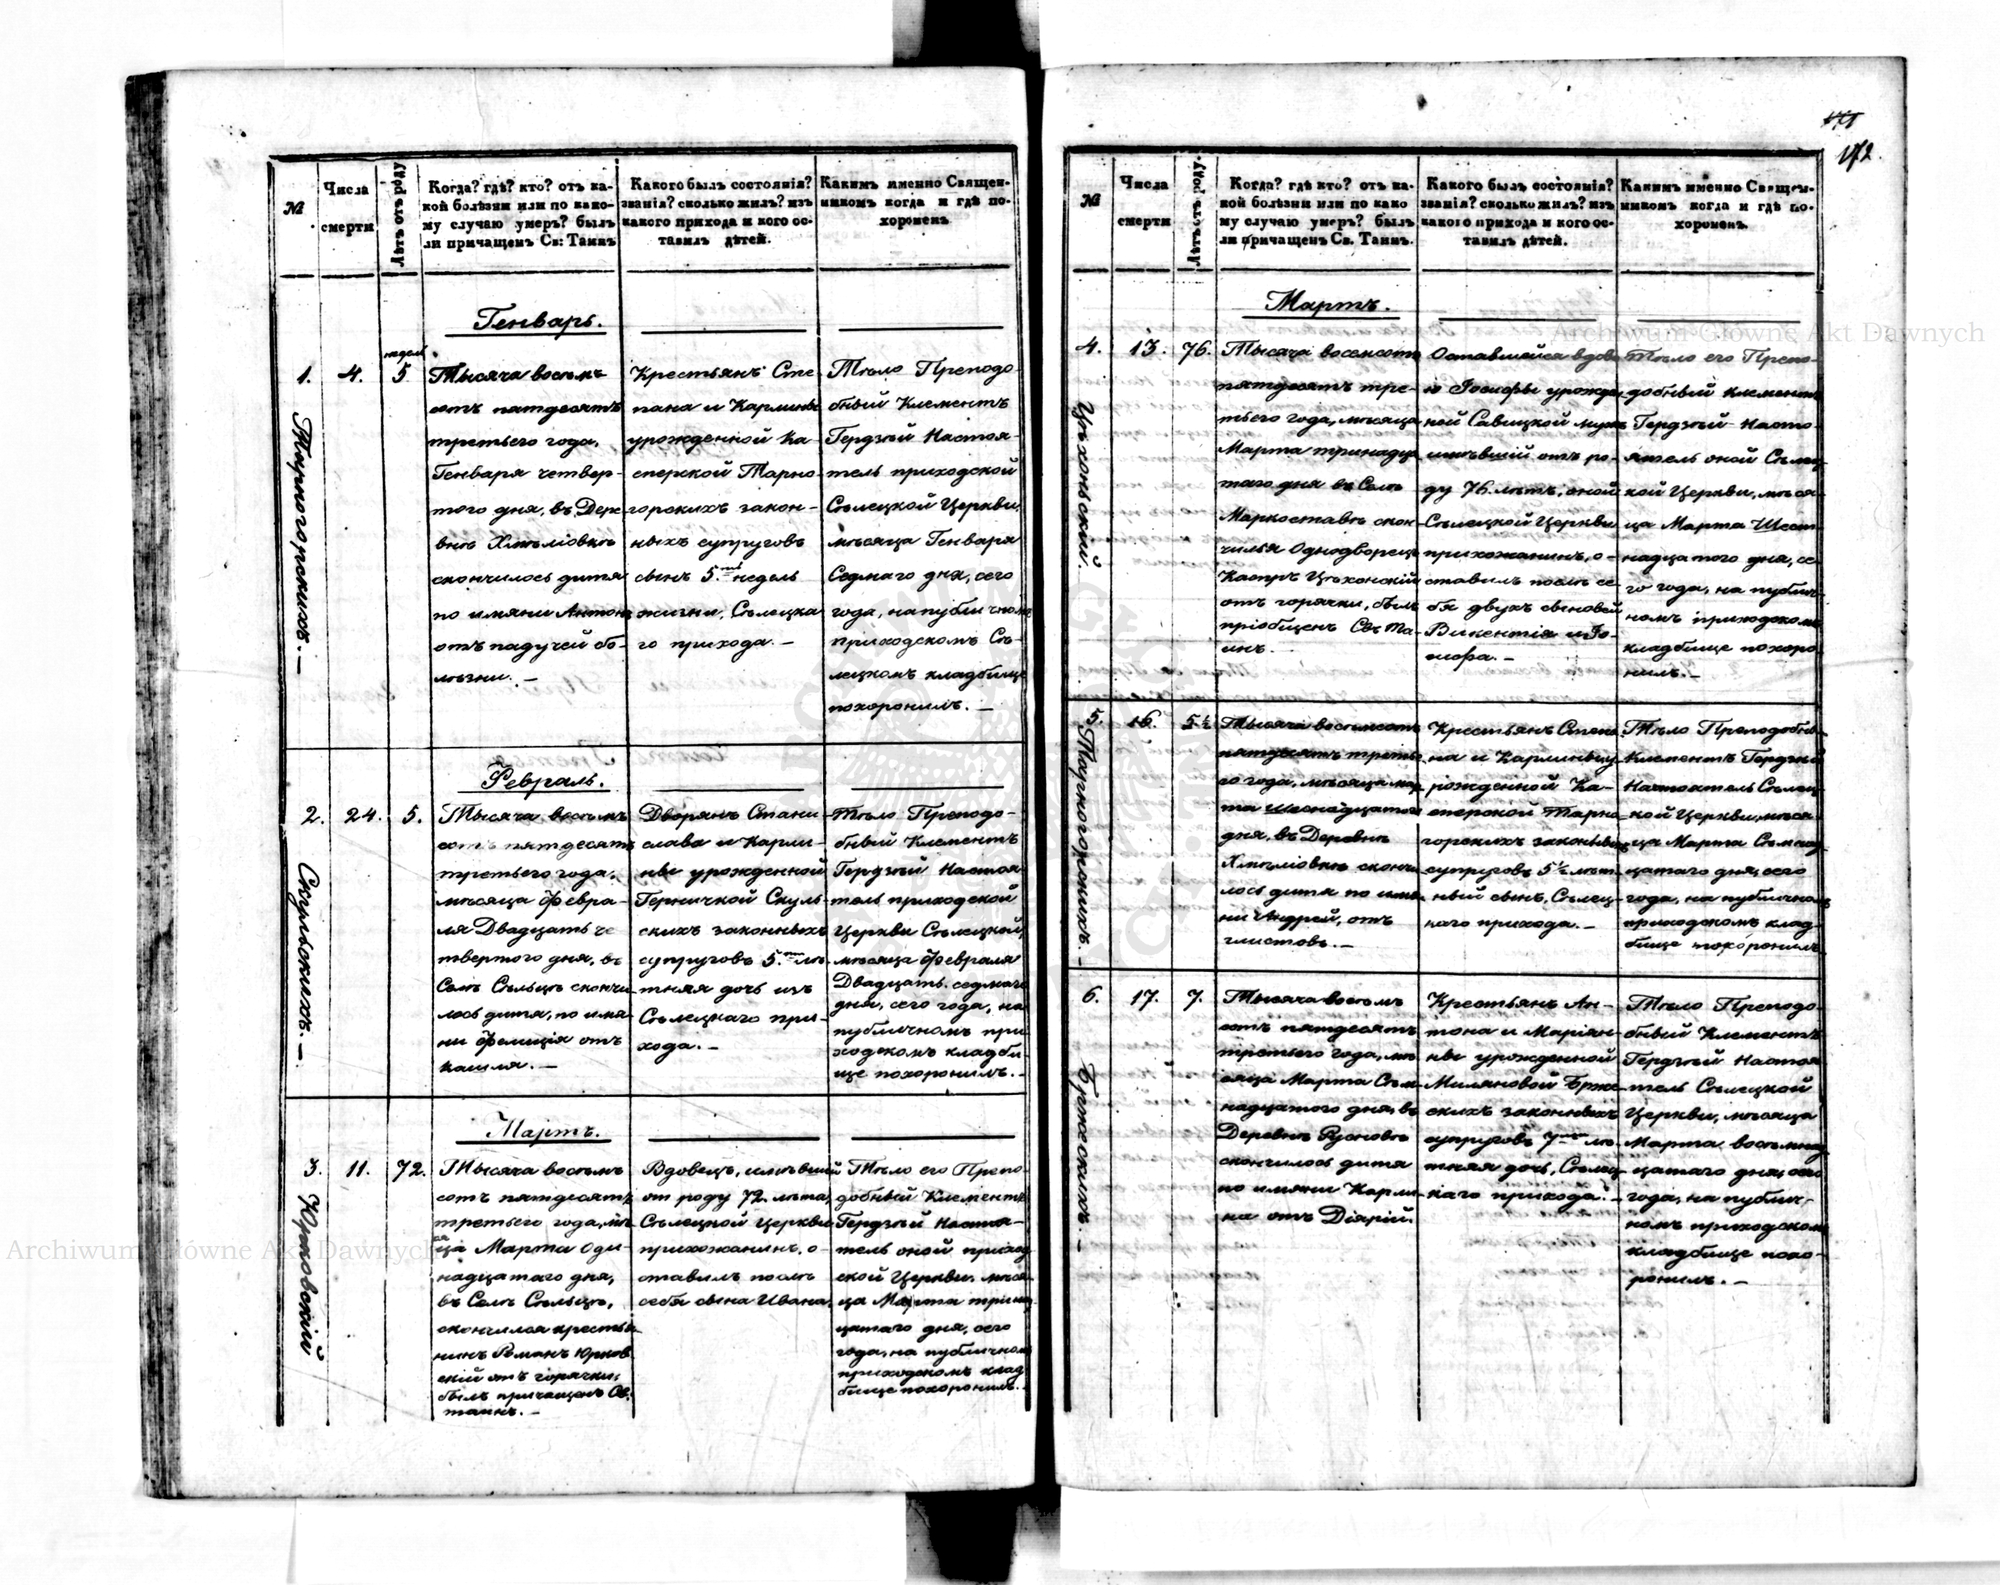 171
172.
№
Числа
смерти
Лѣтъ отъ роду
Когда? гдѣ? кто? отъ ка-
кой болѣзни или по како-
му случаю умеръ? былъ
ли причащенъ Св: Таинъ
Какого былъ состоянія?
званія? сколько жилъ? изъ
какого прихода и кого ос-
тавилъ дѣтей.
Какимъ именно Священ-
никомъ когда и гдѣ по-
хороненъ
Генварь.
1.
4.
недель
5
Тарногорскихъ. —
Тысяча восемъ
сотъ пятдесятъ
третьего года,
Генваря четвер-
того дня, въ Дере
внѣ Хмѣліовкѣ
скончилось дитя
по имяни Антонъ
отъ падучей бо-
лѣзни. —
Крестьянъ Сте
пана и Карлины
урожденной Ка
сперской Тарно-
горскихъ закон-
ныхъ супруговъ
сынъ 5 ти недель
жизни, Сѣлецка
го прихода. —
Тѣло Преподо-
бный Климентъ
Гердзый Настоя-
тель приходской
Сѣлецкой Церкви,
мѣсяца Генваря
Седмаго дня, сего
года, на публичномъ
приходскомъ Сѣ-
лецкомъ кладбище
похоронилъ. —
Февраль.
2.
24.
5.
Скульскихъ. —
Тысяча восемъ
сотъ пятдесятъ
третьего года,
мѣсяца Февра-
ля Двадцать че
твертого дня, въ
Селѣ Сѣльцѣ скончи
лось дитя, по имя
ни Фелиція отъ
кашля. —
Дворянъ Стани-
слава и Карли-
ны урожденной
Герничкой Скуль-
скихъ законныхъ
супруговъ 5. ти лѣ-
тняя дочь изъ
Сѣлецкаго при-
хода. —
Тѣло Преподо-
бный Климентъ
Гердзый Настоя
тель приходской
Церкви Сѣлецкой,
мѣсяца Февраля
Двадцать седмаго
дня, сего года, на
публичномъ при
ходскомъ кладби-
ще похоронилъ. —
Мартъ.
3.
11.
72.
Юрковскій
Тысяча восемъ
сотъ пятдесятъ
третьего года, мѣ
ся
ца Марта Оди-
надцатого дня,
въ Селѣ Сѣльцѣ,
скончился крестья
нинъ Романъ Юрков
скій отъ горячки,
былъ причащенъ Св.
таинъ. —
Вдовецъ, имѣвшій
отъ роду 72. лѣта,
Сѣлецкой Церкви
прихожанинъ, о-
ставилъ послѣ
себя сына Ивана.
Тѣло его Препо-
добный Климентъ
Гердзый Настоя-
тель оной приход
ской Церкви, мѣся-
ца Марта тринад
цатаго дня, сего
года, на публичномъ
приходскомъ клад
бище похоронилъ. —
№
Числа
смерти
Лѣтъ отъ роду.
Когда? гдѣ кто? отъ ка-
кой болѣзни или по како
му случаю умеръ? былъ
ли причащенъ Св. Таинъ.
Какого былъ состоянія?
званія? сколько жилъ? изъ
какого прихода и кого ос-
тавилъ дѣтей.
Какимъ именно Священ-
никомъ когда и гдѣ по-
хороненъ.
Мартъ.
4.
13.
76.
Цѣхоньскій.
Тысяча восемсотъ
пятдесятъ тре-
тьего года, мѣсяца
Марта тринадца
таго дня въ Селѣ
Маркоставѣ скон-
чился Однодворецъ
Каспръ Цѣхонскій
отъ горячки, былъ
пріобщенъ Св. Та-
инъ. —
Оставшейся вдов
ю Іосифы урожде
ной Савицкой мужъ
имѣвшій отъ ро-
ду 76. лѣтъ, оной
Сѣлецкой Церкви
прихожанинъ, о-
ставилъ послѣ се
бя двухъ сыновей
Викентія и Іо-
сифа. —
Тѣло его Препо-
добный Климентъ
Гердзый Насто-
ятель оной Сѣлец
кой Церкви, мѣся-
ца Марта Шест
надцатого дня, се-
го года, на публич-
номъ приходскомъ
кладбище похоро
нилъ. —
5.
16.
5½
Тарногорскихъ. —
Тысяча восемсотъ
пятдесятъ третье
го года, мѣсяца Мар
та шеснадцатого
дня, въ Деревнѣ
Хмѣліовкѣ сконч
лось дитя по имя
ни Андрей, отъ
глистовъ. —
Крестьянъ Степа
на и Карлины у
рожденной Ка-
сперской Тарно
горскихъ законныхъ
супруговъ 5½ лѣт
ный сынъ, Сѣлец-
каго прихода. —
Тѣло Преподобны
Климентъ Гердзый
Настоятель Сѣлец
кой Церкви, мѣся
ца Марта Сѣмнад
цатаго дня, сего
года, на публичномъ
приходскомъ клад-
бище похоронилъ.
6.
17.
7.
Бржескихъ. —
Тысяча восемъ
сотъ пятдесятъ
третьего года, мѣ
сяца Марта Сѣм
надцатого дня, въ
Деревнѣ Русновѣ
скончилось дитя
по имяни Карли
на отъ Діярій.
Крестьянъ Ан-
тона и Маріян-
ны урожденной
Миляновой Брже
скихъ законныхъ
супруговъ 7 ми лѣ
тняя дочь, Сѣлец
каго прихода. —
Тѣло Преподо-
бный Климентъ
Гердзый Настоя
тель Сѣлецкой
Церкви, мѣсяца
Марта восемнад
цатаго дня, сего
года, на публич-
номъ приходскомъ
кладбище похо-
ронилъ. —
Archiwum Główne Akt Dawnych
Archiwum Główne Akt Dawnych